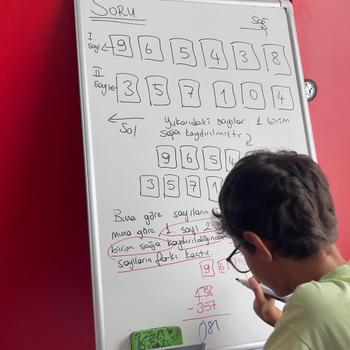 SORU
Sağ
I
sayı ← 9 6 5 4 3 8
II
Sayı ← 3 5 7 1 0 4
← Sol
Yukarıdaki sayılar 1 birim
sağa kaydırılmıştır.
9 6 5 4
3 5 7 1
Buna göre sayıların
muna göre 1 sayı 2
birim sağa kaydırıldığında
sayıların farkı kaçtır.
9 6
438
- 357
081